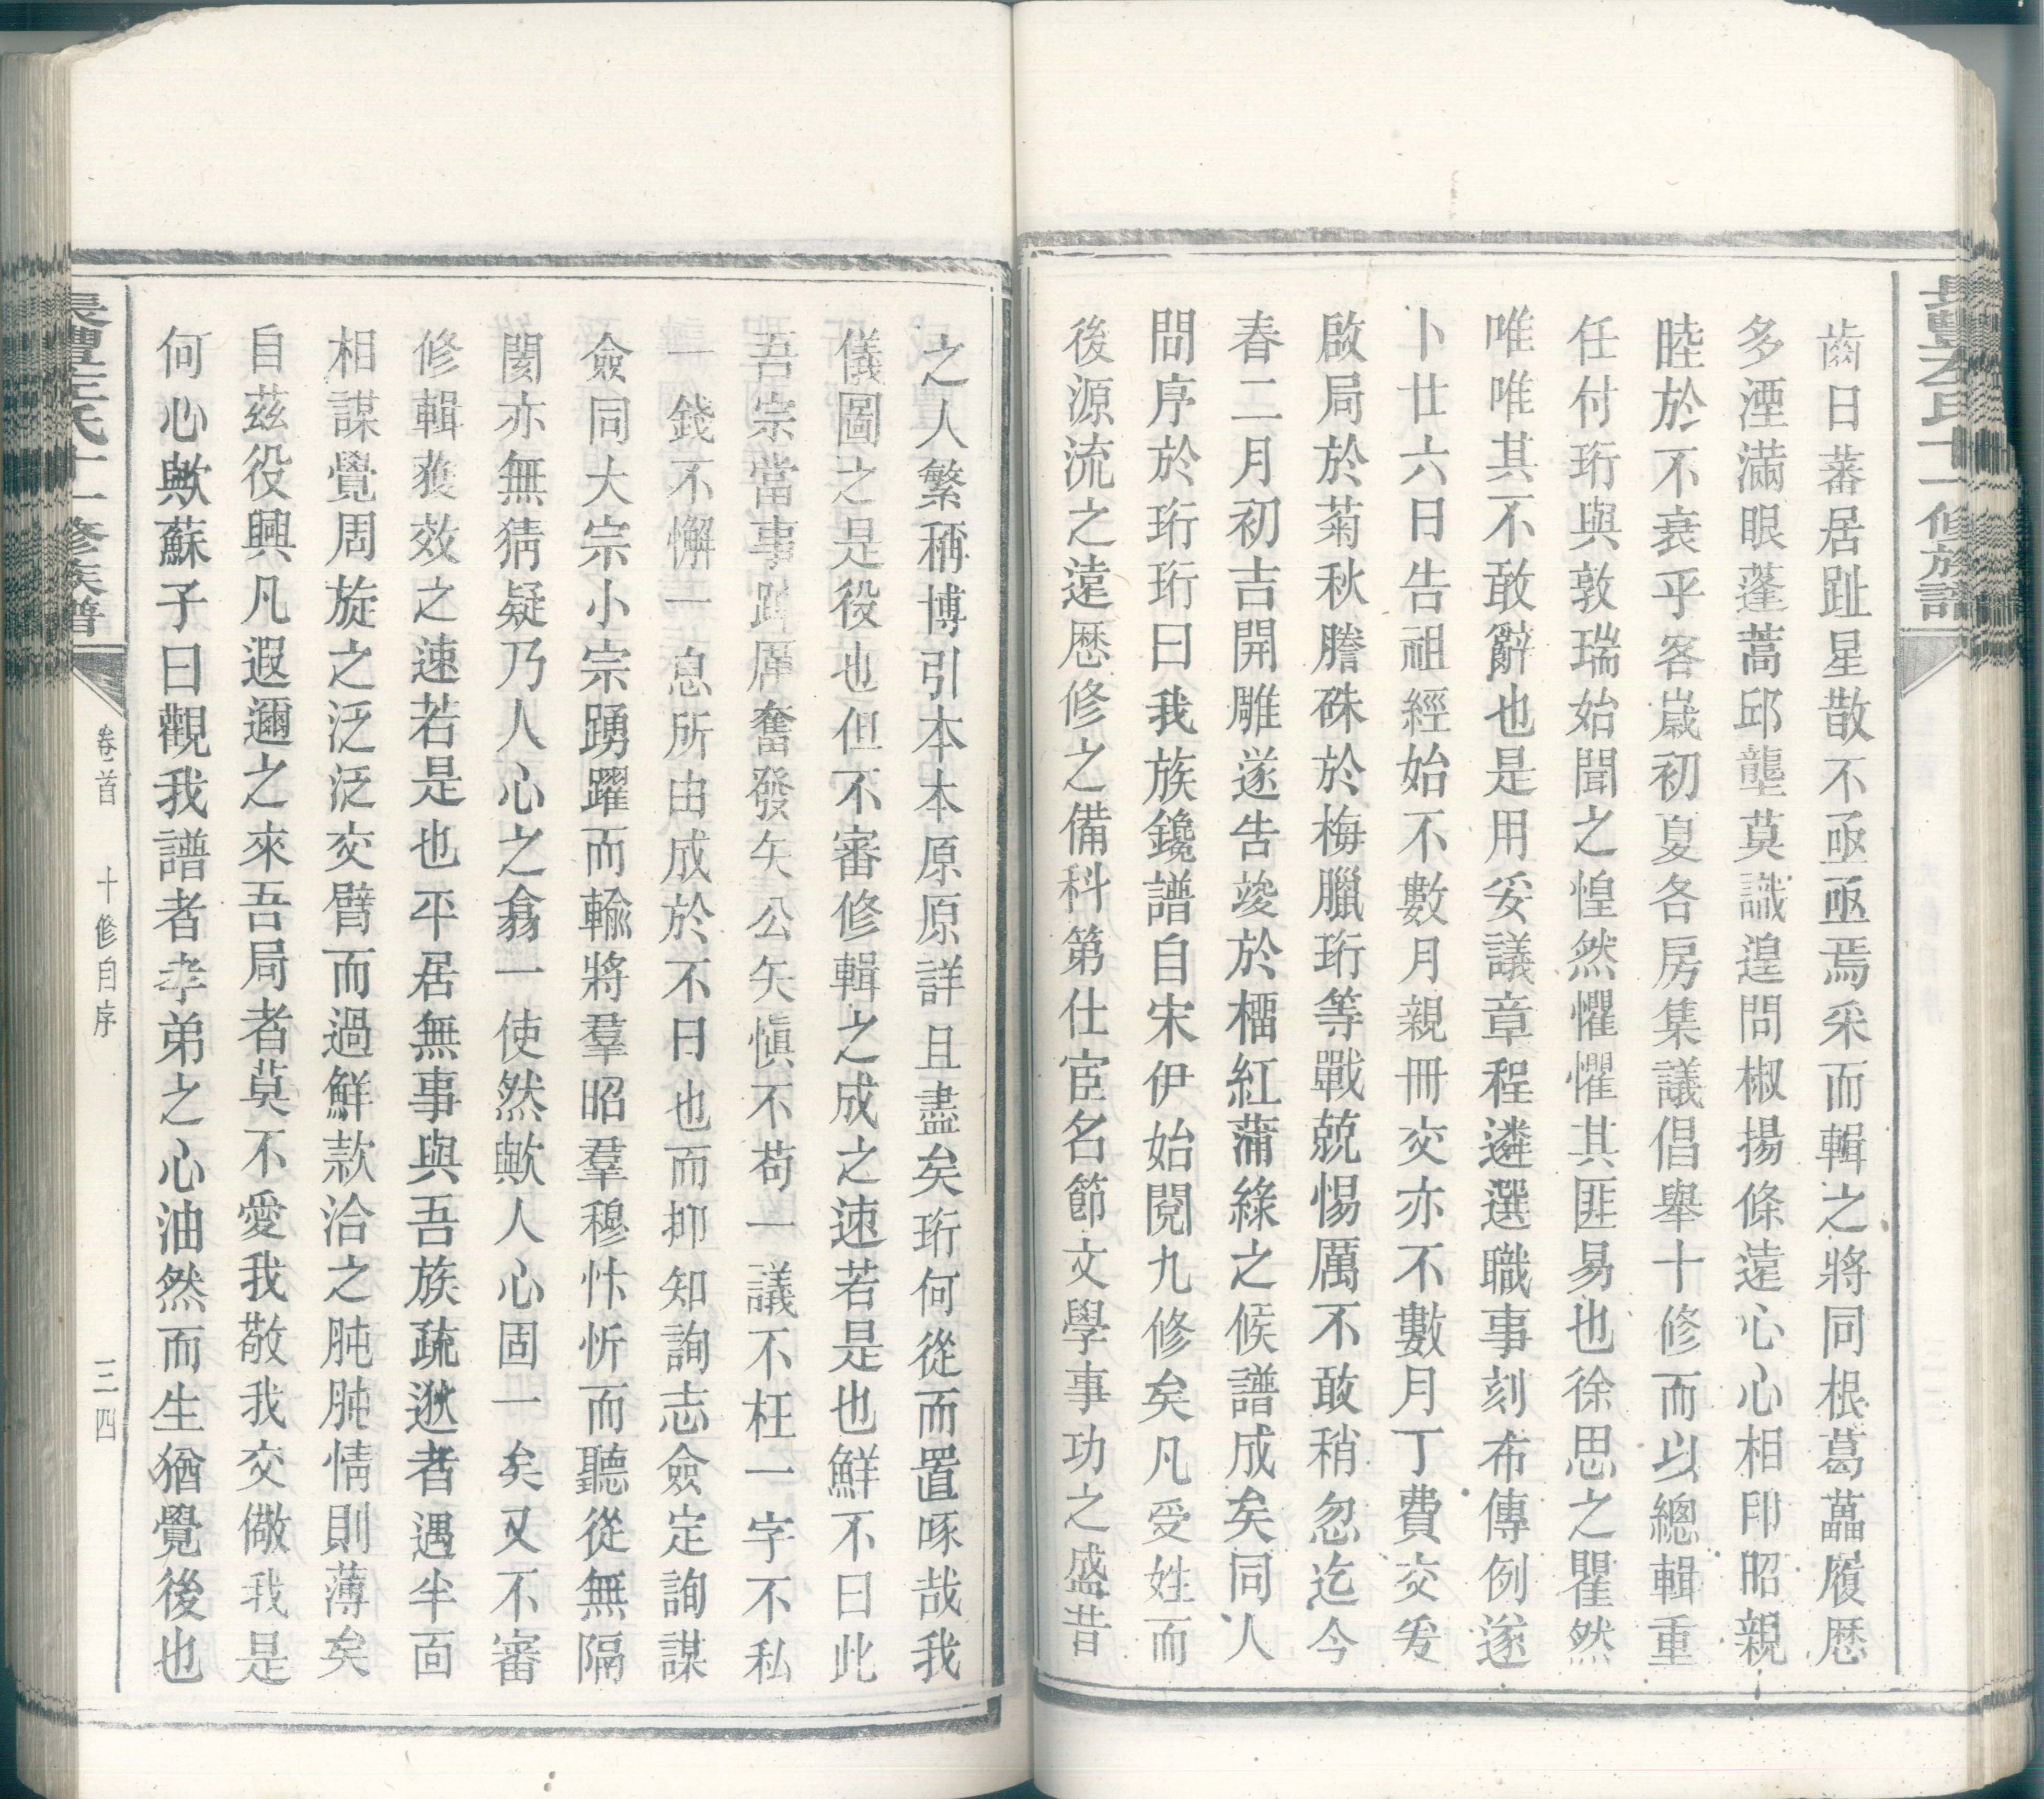 齒日蕃居趾星散不亟亟焉采而輯之將同根葛藟履歷
多湮滿眼蓬蒿邱壟莫識遑問椒揚條遠心心相印昭親
睦於不衰乎客嵗初夏各房集議倡舉十修而以總輯重
任付珩與敦瑞始聞之惶然懼懼其匪易也徐思之瞿然
唯唯其不敢辭也是用妥議章程遴選職事刻布傳例遂
卜廿六日告祖經始不數月親冊交亦不數月丁費交爰
啟局於菊秋謄硃於梅臘珩等戰兢惕厲不敢稍忽迄今
春二月初吉開雕遂告竣於榴紅蒲綠之候譜成矣同人
問序於珩珩曰我族鑱譜自宋伊始閱九修矣凡受姓而
後源流之遠歷修之備科第仕宦名節文學事功之盛昔
之人繁稱博引本本原原詳且盡矣珩何從而置啄哉我
儀圖之是役也但不審修輯之成之速若是也鮮不曰此
吾宗當事踔厲奮發矢公矢慎不苟一議不枉一字不私
一錢不懈一息所由成於不日也而抑知詢志僉定詢謀
僉同大宗小宗踴躍而輸將羣昭羣穆忭忻而聽從無隔
閡亦無猜疑乃人心之翕一使然歟人心固一矣又不審
修輯蕆效之速若是也平居無事與吾族疏逖者遇半面
相謀覺周旋之泛泛交臂而過鮮款洽之肫肫情則薄矣
自茲役興凡遐邇之來吾局者莫不愛我敬我交儆我是
何心歟蘇子曰觀我譜者孝弟之心油然而生猶覺後也
卷首
十修自序
三四